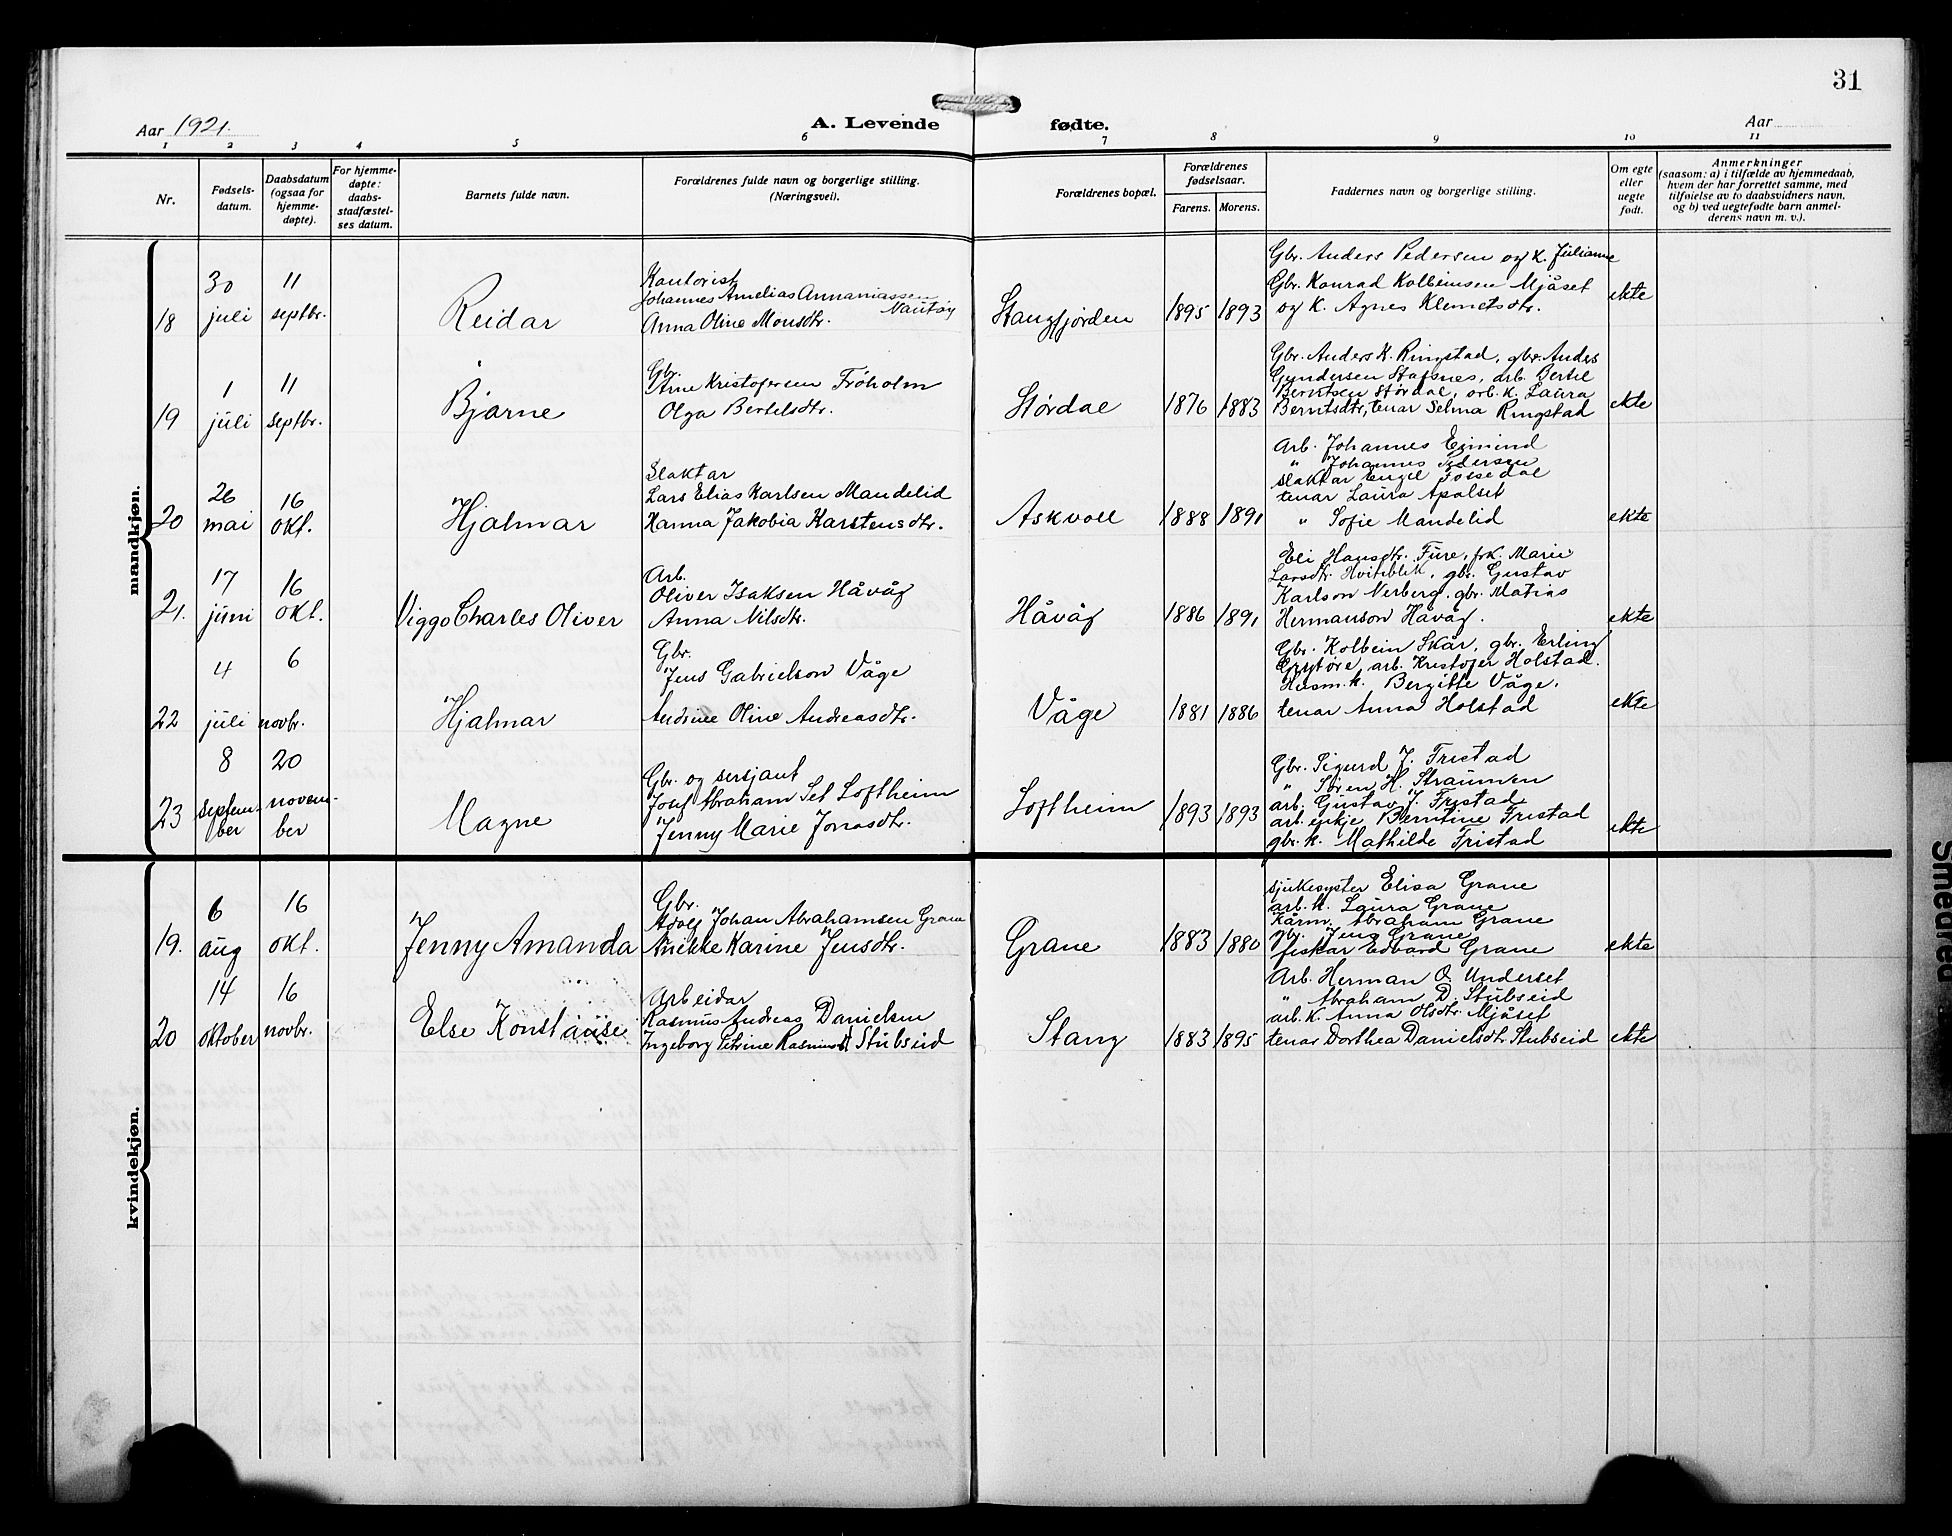 31
Aar 1921. A. Levende fødte. Aar
1 2 3 4 5 6 7 8 9 10 11
Nr. Fødsels-datum. Daabsdatum (ogsaa for hjemme-døpte). For hjemme-døpte: daabs-stadfæstel-ses datum. Barnets fulde navn. Forældrenes fulde navn og borgerlige stilling. (Næringsvei). Forældrenes bopæl. Forældrenes fødselsaar. Farens. Morens. Faddernes navn og borgerlige stilling. Om egte eller uegte født. Anmerkninger (saasom: a) i tilfælde av hjemmedaab, hvem der har forrettet samme, med tilføielse av to daabsvidners navn, og b) ved uegtefødte barn anmel-derens navn m. v.).
mandkjøn.
18 30 juli 11 septbr. Reidar
Kontorist
Johannes Amelias Annaniassen Nautøy
Anna Oline Monsdtr.
Stangfjorden 1895 1893
Gbr. Anders Pedersen og k. Julianne
Gbr. Konrad Kolbeinsen Mjåset
og k. Agnes Klemetsdtr.
ekte
19 1 juli 11 septbr. Bjarne
Gbr.
Arne Kristofersen Frøholm
Olga Bertelsdtr.
Stordal 1876 1883
Gbr. Anders K. Ringstad, gbr. Anders
Gundersen Stafsnes, arb. Bertil
Berntsen Stordal, arb. k. Laura
Berntsdtr, tenar Selma Ringstad
ekte
20 26 mai 16 okt. Hjalmar
Slaktar
Lars Elias Karlsen Mandelid
Hanna Jakobia Karstensdtr.
Askvoll 1888 1891
Arb. Johannes Eimind
" Johannes Pedersen
slaktar Engel Fossedal
tenar Laura Apalset
" Sofie Mandelid
ekte
21. 17 juni 16 okt. Viggo Charles Oliver
Arb.
Oliver Isaksen Håvåg
Anna Nilsdtr.
Håvåg 1886 1891
Eli Hansdtr. Fure, frk. Marie
Larsdtr. Hviteblik, gbr. Gustav
Karlson Nerberg, gbr. Matias
Hermanson Håvåg.
ekte
22 4 juli 6 novbr. Hjalmar
Gbr.
Jens Gabrielson Våge
Andrine Oline Andreasdtr.
Våge 1881 1886
Gbr. Kolbein Skår, gbr. Erling
Grytøre, arb. Kristofer Holstad.
Husm. k. Bergitte Våge,
tenar Anna Holstad
ekte
23 8 septem-ber 20 novem-ber Magne
Gbr. og sersjant
Josef Abraham Set Loftheim
Jenny Marie Jonasdtr.
Loftheim 1893 1893
Gbr. Sigurd J. Fristad
" Søren H. Straumen
arb. Gustav J. Fristad
arb. enkje Berntine Fristad
gbr. k. Mathilde Fristad
ekte
kvindekjøn.
19. 6 aug 16 okt. Jenny Amanda
Gbr.
Adolf Johan Abrahamsen Grane
Anikke Karine Jensdtr.
Grane 1883 1880
sjukesyster Elisa Grane
arb. k. Laura Grane
Kårm. Abraham Grane
gbr. Jens Grane
fiskar Edvard Grane
ekte
20 14 oktober 16 novbr. Else Konstanse
Arbeidar
Rasmus Andreas Danielsen
Ingeborg Petrine Rasmusd Stubseid
Stang 1883 1895
Arb. Herman O. Underset
" Abraham D. Stubseid
arb. k. Anna Olsdtr. Mjåset
tenar Dorthea Danielsdtr Stubseid
ekte
Smedred